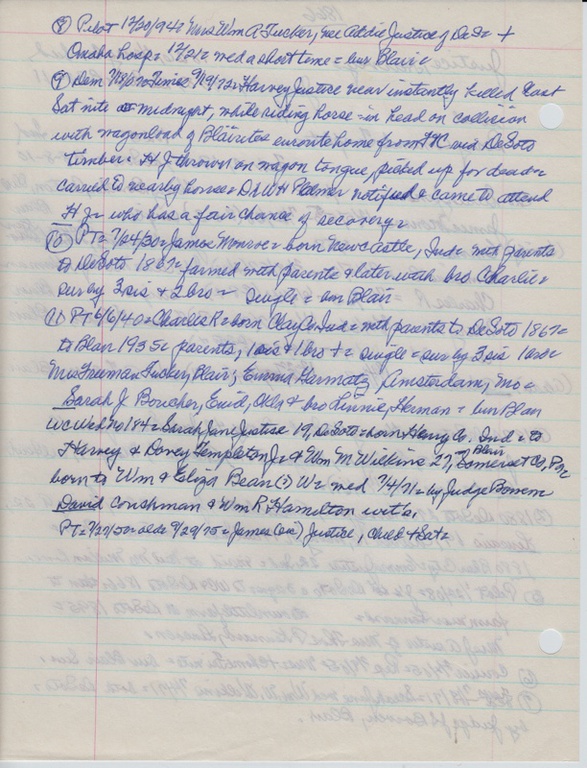 ⑧ Pilot 12/20/94= Mrs Wm A Tucker, nee Addie Justice of DeSo +
Omaha hosp= 12/21= med a short time = bur Blair=
⑨ Dem Times 9/19/72= Harvey Justice near instantly killed last
Sat nite midnight, while riding horse = in head on collision
with wagonload of Blairites enroute home from FtC via DeSoto
timber= H J thrown on wagon tongue, picked up for dead=
carried to nearby house= Dr WH Palmer notified & came to attend
H J= who has a fair chance of recovery=
⑩ PT= 7/24/30= James Monroe= born New Castle, Ind= with parents
to DeSoto 1867= farmed with parents & later with bro Charlie=
sur by 3 sis + 2 bro = single = bur Blair
⑪ PT 6/6/40= Charles R= born Clay Co Ind= with parents to DeSoto 1867=
to Blair 1935= parents, 1 sis + 1 bro += single = sur by 3 sis 1 bro=
Mrs Freeman Tucker, Blair; Emma Hermatz, Amsterdam, Mo=
Sarah J Boucher, Enid, Okla & bro Linnie, Herman = bur Blair
WC Wed 70 184= Sarah Jane Justice 19, DeSoto= born Henry Co. Ind = to
Harvey & Dovey Templeton J= & Wm M Wilkins 27, Blair Somerset Co, Pa=
born to Wm & Eliza Bean(?) W= med 7/4/71= by Judge Bowen
David Couchman & Wm R Hamilton wits.
PT= 7/27/50 olds 9/29/75= James Justice, Club + Sat=